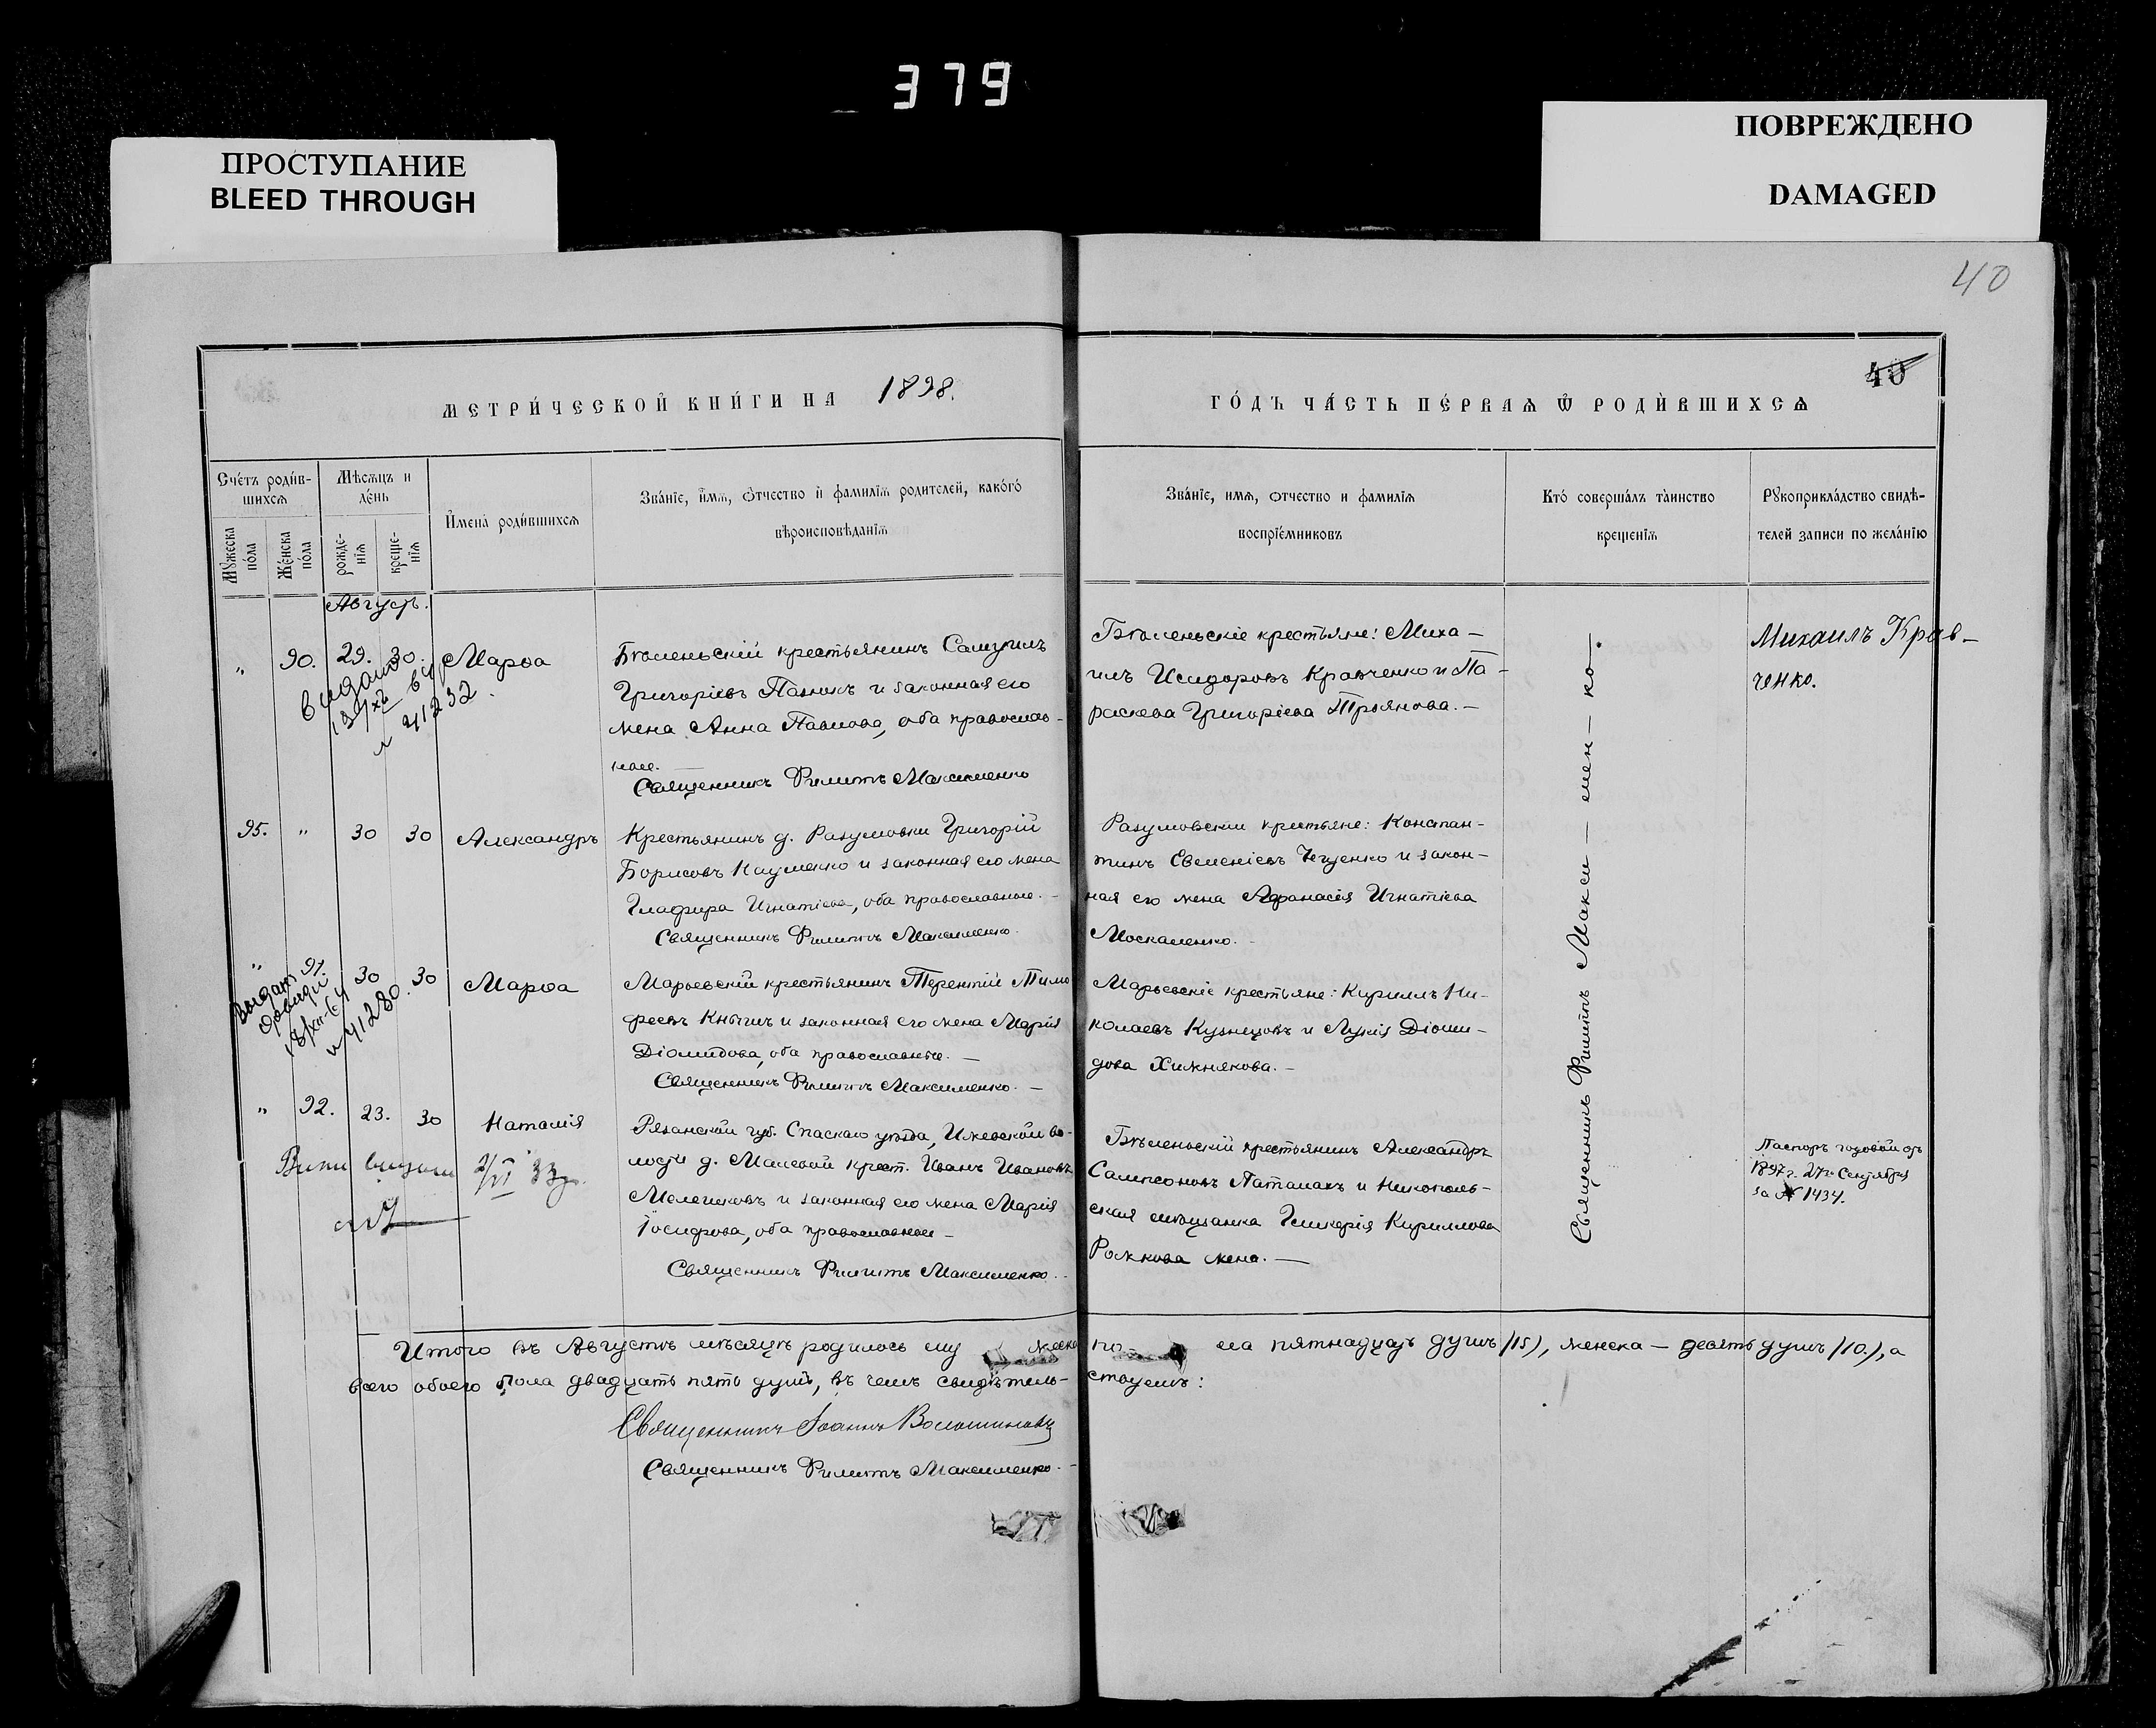 379
ПРОСТУПАНИЕ
BLEED THROUGH
ПОВРЕЖДЕНО
DAMAGED
40
40
МЕТРИ́ЧЕСКОЙ КНИ́ГИ НА 1898.
ГО́ДЪ ЧА́СТЬ ПЕ́РВАѦ Ѿ РОДИ́ВШИХСѦ
Сче́тъ роди́в-
шихсѧ
Мꙋжеска по́ла
Же́нска по́ла
Мѣсѧцъ и
де́нь
рожде-
нїѧ
креще-
нїѧ
И҆мена̀ роди́вшихсѧ
Зва́нїе, и҆́мѧ, ѻ҆́тчество и҆ фамилїѧ родителей, како́гѡ
вѣроисповѣданїѧ
Зва́нїе, имѧ, ѻтчество и фамилїѧ
воспрїе́мниковъ
Кто́ соверша́лъ та̀инство
крещенїѧ
Рꙋкоприкла́дство свидѣ-
телей записи по жела́нїю
Августъ.
" 90. 29. 30. Марѳа
видано
41232.
Бѣленьскій крестьянинъ Самуилъ
Григоріевъ Панокъ и законная его
жена Анна Павлова, оба православ-
ные. —
Священникъ Филиппъ Максименко
Бѣленьскіе крестьяне: Миха-
илъ Исидоровъ Кравченко и Па-
раскева Григоріева Троянова. —
Михаилъ Крав-
ченко.
95. " 30 30 Александръ
Крестьянинъ д. Разумовки Григорій
Борисовъ Науменко и законная его жена
Глафира Игнатіева, оба православные. —
Священникъ Филиппъ Максименко.
Разумовскіи крестьяне: Констан-
тинъ Евменіевъ и закон-
ная его жена Афанасія Игнатіева
Москаленко. -
" 91. 30 30 Марѳа
41230.
Марьевскій крестьянинъ Терентій Тимо
феевъ Кнышъ и законная его жена Марія
Діомидова, оба православные. —
Священникъ Филиппъ Максименко. —
Марьевскіе крестьяне: Кириллъ Ни-
колаевъ Кузнецовъ и Лукія Діоми-
дова Хижнякова. —
" 92. 23. 30 Наталія
Рязанской губ. Спаскаго уѣзда, Ижевской во-
лости д. Малевой крест. Иванъ Ивановъ
и законная его жена Марія
Іосифова, оба православные —
Священникъ Филиппъ Максименко.
Бѣленьскій крестьянинъ Александръ
Сампсоновъ Паталахъ и Никополь-
ская мѣщанка Гликерія Кириллова
Рожкова жена. —
Паспортъ годовой отъ
1897 г. 27го Сентября
за № 1434.
Священникъ Филиппъ Макси — мен — ко —.
Итого въ Августѣ мѣсяцѣ родилось му жеска по ла пятнадцать душъ /15/, женска — десять душъ /10/, а
всего обоего пола двадцать пять душъ, въ чемъ свидѣтель- ствуемъ:
Священникъ Іоаннъ Волошиновъ
Священникъ Филиппъ Максименко. -